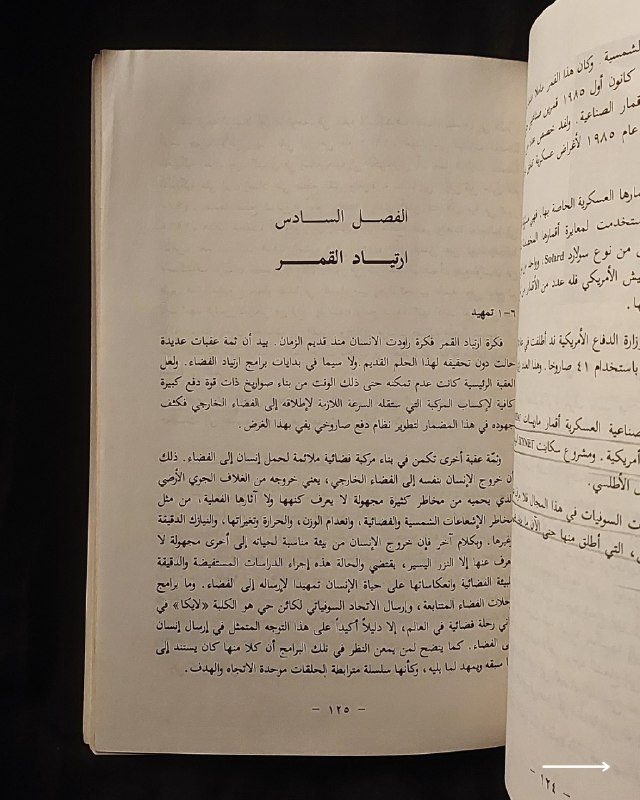 الشمسية. وكان هذا القمر
كانون أول ١٩٨٥ قمرين
قمار الصناعية. ولقد خصص
عام ١٩٨٥ لأغراض عسكرية
مارها العسكرية الخاصة بها، ففي
ستخدمت لمعايرة أقمارها
ى من نوع سولارد Solard،
يش الأمريكي فله عدد من الأقمار
ها.
زارة الدفاع الأمريكية قد أطلقت في
باستخدام ٤١ صاروخا. وهذا العدد
صناعية العسكرية أقمار
أمريكية. ومشروع سكاينت
ف الأطلسي.
ث السوفيات في هذا المجال فلا
، التي أطلق منها حتى الآن
- ١٢٤ -
الفصل السادس
ارتياد القمر
٦-١ تمهيد
فكرة ارتياد القمر فكرة راودت الانسان منذ قديم الزمان. بيد أن ثمة عقبات عديدة
حالت دون تحقيقه لهذا الحلم القديم ولا سيما في بدايات برامج ارتياد الفضاء. ولعل
العقبة الرئيسية كانت عدم تمكنه حتى ذلك الوقت من بناء صواريخ ذات قوة دفع كبيرة
كافية لإكساب المركبة التي ستقله السرعة اللازمة لإطلاقه إلى الفضاء الخارجي فكثف
جهوده في هذا المضمار لتطوير نظام دفع صاروخي يفي بهذا الغرض.
وثمّة عقبة أخرى تكمن في بناء مركبة فضائية ملائمة لحمل إنسان إلى الفضاء. ذلك
أن خروج الإنسان بنفسه إلى الفضاء الخارجي، يعني خروجه من الغلاف الجوي الأرضي
الذي يحميه من مخاطر كثيرة مجهولة لا يعرف كنهها ولا آثارها الفعلية، من مثل
مخاطر الإشعاعات الشمسية والفضائية، وانعدام الوزن، والحرارة وتغيراتها. والنيازك الدقيقة
وغيرها. وبكلام آخر فإن خروج الإنسان من بيئة مناسبة لحياته إلى أخرى مجهولة لا
يعرف عنها إلا النزر اليسير، يقتضي والحالة هذه إجراء الدراسات المستفيضة والدقيقة
للبيئة الفضائية وانعكاساتها على حياة الإنسان تمهيدا لإرساله إلى الفضاء. وما برامج
رحلات الفضاء المتتابعة، وإرسال الاتحاد السوفياتي لكائن حي هو الكلبة «لايكا» في
ثاني رحلة فضائية في العالم، إلا دليلاً أكيداً على هذا التوجه المتمثل في إرسال إنسان
إلى الفضاء. كما يتضح لمن يمعن النظر في تلك البرامج أن كلا منها كان يستند إلى
ما سبقه ويمهد لما يليه، وكأنها سلسلة مترابطة الحلقات موحدة الاتجاه والهدف.
- ١٢٥ -